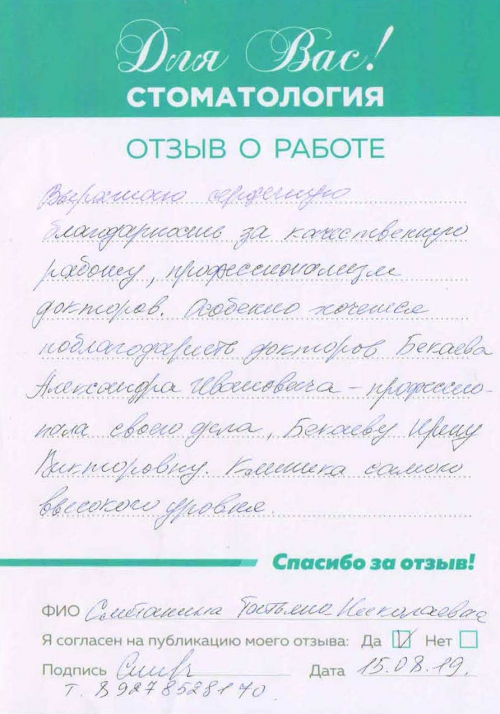 Для Вас!
СТОМАТОЛОГИЯ
ОТЗЫВ О РАБОТЕ
Выражаю сердечную
благодарность за качественную
работу, профессионализм
докторов. Особенно хочется
поблагодарить докторов Бекаева
Александра Ивановича – профессио-
нала своего дела, Бекаеву Ирину
Викторовну. Клиника самого
высокого уровня.
Спасибо за отзыв!
ФИО Сметанина Татьяна Николаевна
Я согласен на публикацию моего отзыва: Да Нет
Подпись Дата 15.08.19.
т. 89278528170